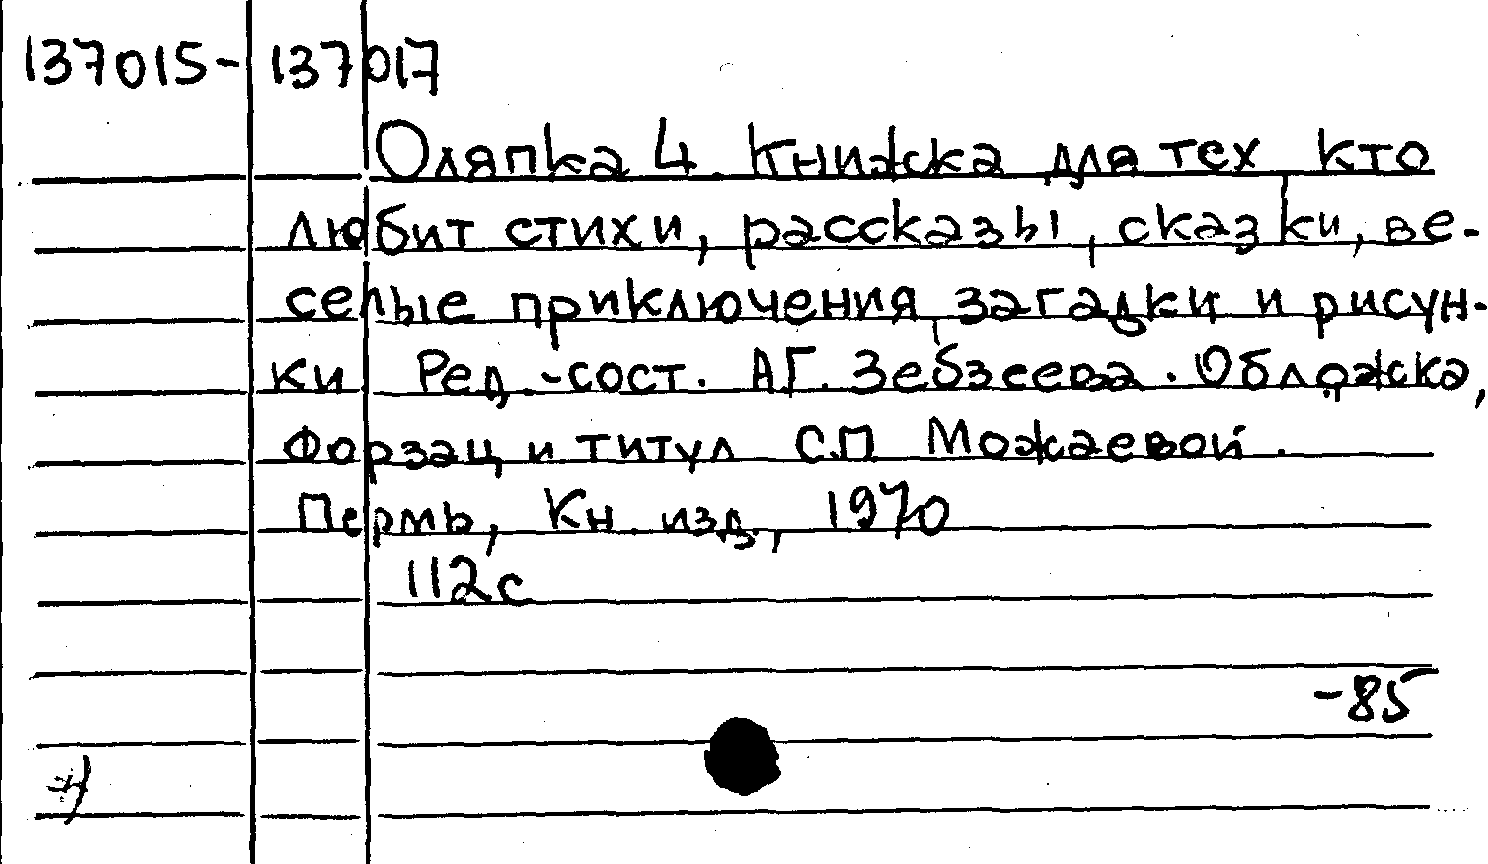 137015-137017
Оляпка 4. Книжка для тех кто
любит стихи, рассказы, сказки, ве-
селые приключения, загадки и рисун-
ки Ред.-сост. А.Г. Зебзеева. Обложка,
Форзац и титул С.П Можаевой.
Пермь, Кн. изд., 1970
112с
-85